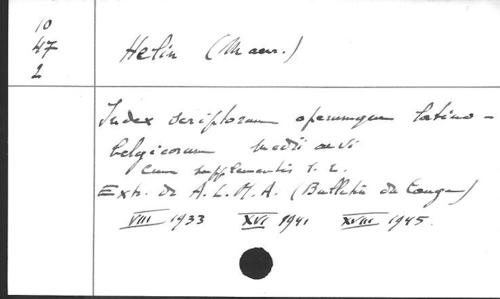 10
47
2
Helin (Maur.)
Index scriptorum operumque latino-
belgicorum medii aevi
cum supplementis 1. 2.
Extr. de A. L. M. A. (Bulletin du Cange)
VIII 1933 XVI 1941 XVIII 1945.